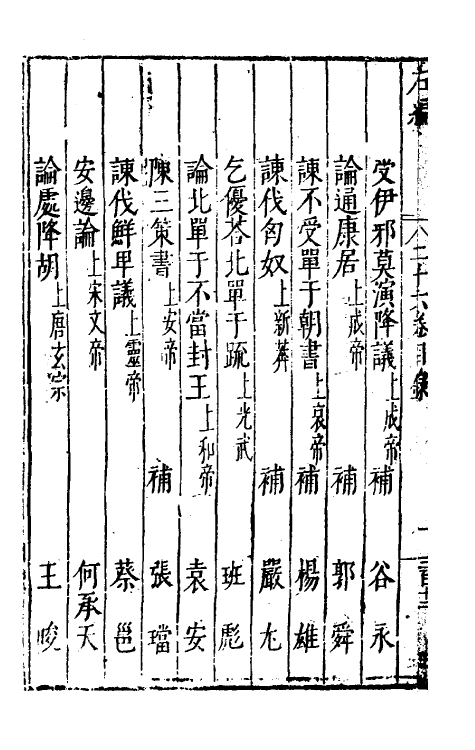 受伊邪莫演降議上成帝 補 谷永
論通康居上成帝 補 郭舜
諫不受單于朝書上哀帝 補 楊雄
諫伐匈奴上新莽 補 嚴尤
乞優荅北單于疏上光武 班彪
論北單于不當封王上和帝 袁安
陳三策書上安帝 補 張璫
諫伐鮮卑議上靈帝 蔡邕
安邊論上宋文帝 何承天
論處降胡上唐玄宗 王晙
二十六卷目錄